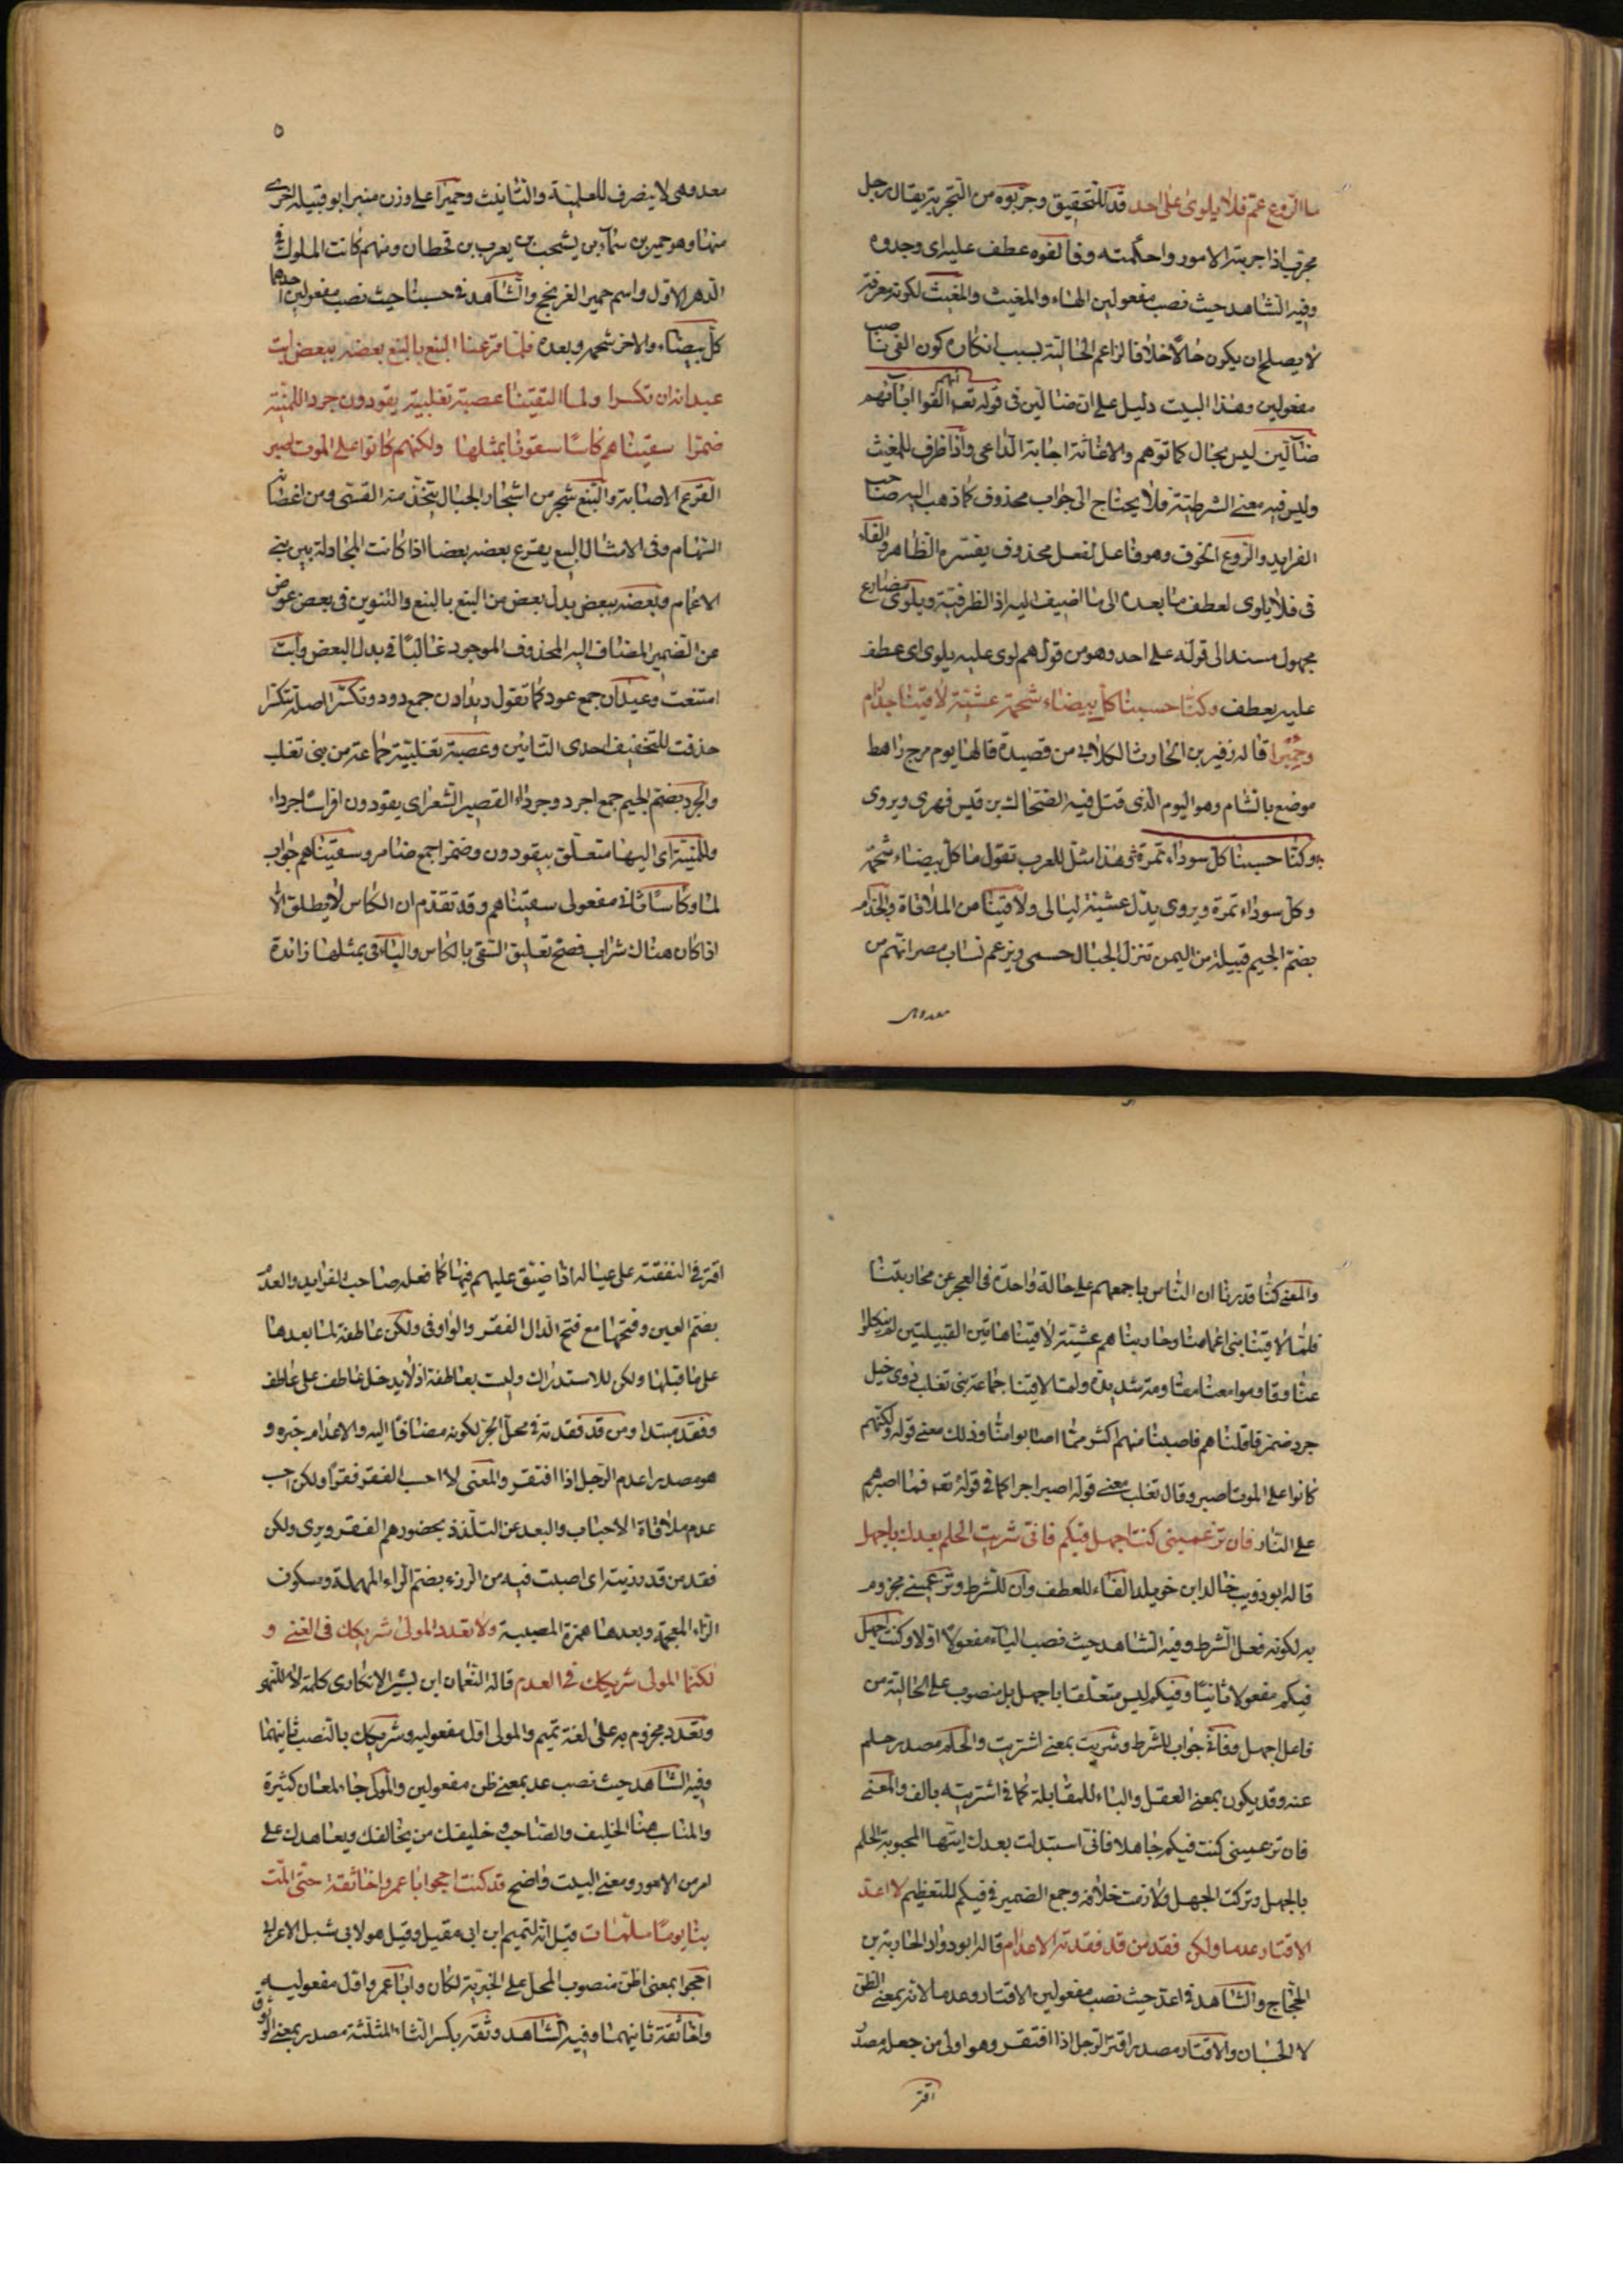 ما الروع عم فلا يلوى على احد قد للتحقيق وجربوه من التجربة يقال رجل
مجرب اذا جربته الامور واحكمته وفالفوه عطف عليه اى وجدوه
وفيه الشاهد حيث نصب مفعولين الهاء والمغيث والمغيث لكونه معرفة
لا يصلح ان يكون حالا خلافا لزاعم الحالية بسبب انكاره كون الفى ناصب
مفعولين وهذا البيت دليل على ان ضالين فى قوله تعم انهم القوا اباءهم
ضالين ليس بحال كما توهم والاغاثة اجابة الداعى واذا ظرف للمغيث
وليس فيه معنى الشرطية فلا يحتاج الى جواب محذوف كما ذهب اليه صاحب
الفرايد والروع الخوف وهو فاعل لفعل محذوف يفسره الظاهر والفاء
فى فلا يلوى لعطف ما بعده الى ما اضيف اليه اذا الظرفية ويلوى مضارع
مجهول مسند الى قوله على احد وهو من قولهم لوى عليه يلوى اى عطف
عليه يعطف وكنا حسبنا كل بيضاء شحمة عشية لاقينا جذام
وحميرا قاله زفير بن الحارث الكلابى من قصيدة قالها يوم مرج راهط
موضع بالشام وهو اليوم الذى قتل فيه الضحاك بن قيس فهرى ويروى
وكنا حسبنا كل سوداء تمرة وهذا مثل للعرب تقول ما كل بيضاء شحمة
وكل سوداء تمرة ويروى بدل عشية ليالى ولاقينا من الملاقاة والجذام
بضم الجيم قبيلة من اليمن تنزل الجبال حسمى ويزعم نساب مصر انهم من
معد وهى
٥
معد وهى لا ينصرف للعلمية والتأنيث وحميرا على وزن منبر ابو قبيلة اخرى
منها وهو حمير بن سبأ بن يشجب بن يعرب بن قحطان ومنهم كانت الملوك فى
الدهر الاول واسم حمير العرنجج والشاهد فى حسبنا حيث نصب مفعولين احدهما
كل بيضاء والاخر شحمة وبعده فلما قرعنا النبع بالنبع بعضه ببعض ابت
عيدانه ان تكسرا ولما التقينا عصبة تغلبية يقودون جردا للمنية
ضمرا سقيناهم كاسا سقونا بمثلها ولكنهم كانوا على الموت اصبر
القرع الاصابة والنبع شجر من اشجار الجبال يتخذ منه القسى ومن اغصانه
السهام وفى الامثال النبع يقرع بعضه بعضا اذا كانت المجادلة بين بنى
الاعمام وبعضه ببعض بدل بعض من النبع بالنبع والتنوين فى بعض عوض
عن الضمير المضاف اليه المحذوف الموجود غالبا فى بدل البعض وابت
امتنعت وعيدان جمع عود كما تقول ديدادن جمع دود وتكسر اصله تتكسرا
حذفت للتخفيف احدى التائين وعصبة تغلبية جماعة من بنى تغلب
والجرد بضم الجيم جمع اجرد وجرداء القصير الشعر اى يقودون افراسا اجرداء
وللمنية اى اليها متعلق بيقودون وضمرا جمع ضامر وسقيناهم جواب
لما وكاسا ثانى مفعولى سقيناهم وقد تقدم ان الكاس لا يطلق الا
اذا كان هناك شراب فصح تعليق السقى بالكاس والباء فى بمثلها زائدة
والمعنى كنا قدرنا ان الناس باجمعهم على حالة واحدة فى العجز عن محاربتنا
فلما لاقينا بنى اعمامنا وحاربناهم عشية لاقينا هاتين القبيلتين لم ينكلوا
عنا وقاوموا معنا مقاومة شديدة ولما لاقينا جماعة بنى تغلب ذوى خيل
جرد ضمر قاتلناهم فاصبنا منهم اكثر مما اصابوا منا وذلك معنى قوله ولكنهم
كانوا على الموت اصبر وقال تغلب معنى قوله اصبر اجرا كما فى قوله تعم فما اصبرهم
على النار فان تزعمينى كنت اجهل فيكم فانى شريت الحلم بعدك بالجهل
قاله ابو ذويب خالد ابن خويلد الفاء للعطف وان للشرط وتزعمينى مجزوم
به لكونه فعل الشرط وفيه الشاهد حيث نصب الياء مفعولا اولا وكنت اجهل
فيكم مفعولا ثانيا وفيكم ليس متعلقا باجهل بل منصوب على الحالية من
فاعل اجهل وفانى جواب للشرط وشريت بمعنى اشتريت والحلم مصدر حلم
عنه وقد يكون بمعنى العقل والباء للمقابلة كما فى اشتريته بالف والمعنى
فان تزعمينى كنت فيكم جاهلا فانى استبدلت بعدك ايتها المحبوبة الحلم
بالجهل وتركت الجهل ولازمت خلافه وجمع الضمير فى فيكم للتعظيم لا اعد
الاقتار عدما ولكن فقد من قد فقدته الاعدام قاله ابو دواد الحارثة بن
الحجاج والشاهد فى اعد حيث نصب مفعولين الاقتار وعدما لانه بمعنى الظن
لا الحسبان والاقتار مصدر اقتر الرجل اذا افتقر وهو اولى من جعله مصدر
اقتر
اقتر فى النفقة على عياله اذا ضيق عليهم فيها كما فعله صاحب الفرايد والعدم
بضم العين وفتحها مع فتح الدال الفقر والواو فى ولكن عاطفة لما بعدها
على ما قبلها ولكن للاستدراك وليت بعاطفة اذ لا يدخل عاطف على عاطف
وفقد مبتدا ومن قد فقدته فى محل الجر لكونه مضافا اليه والاعدام خبره و
هو مصدر اعدم الرجل اذا افتقر والمعنى لا احسب الفقر فقرا ولكن احسب
عدم ملاقاة الاحباب والبعد عن التلذذ بحضورهم الفقر ويرى ولكن
فقد من قد رزيته اى اصبت فيه من الرزء بضم الراء المهملة وسكون
الزاء المعجمة وبعدها همزة المصيبة ولا تعدد المولى شريكك فى الغنى و
لكنما المولى شريكك فى العدم قاله النعمان ابن بشير الانكارى كلمة لا للنهى
وتعدد مجزوم به على لغة تميم والمولى اول مفعوليه وشريكك بالنصب ثانيهما
وفيه الشاهد حيث نصب عد بمعنى ظن مفعولين والمولى جاء لمعان كثيرة
والمناسب هنا الحليف والصاحب وحليفك من يحالفك ويعاهدك على
امر من الامور ومعنى البيت واضح قد كنت احجوا ابا عمرو اخا ثقة حتى المت
بنا يوما ملمات قيل انه لتميم ابن ابى مقيل وقيل هو لابى شبل الاعرابى
احجوا بمعنى اظن منصوب المحل على الخبرية لكان وابا عمرو اول مفعوليه
واخا ثقة ثانيهما وفيه الشاهد وثقة بكسر الثاء المثلثة مصدر بمعنى الوثوق